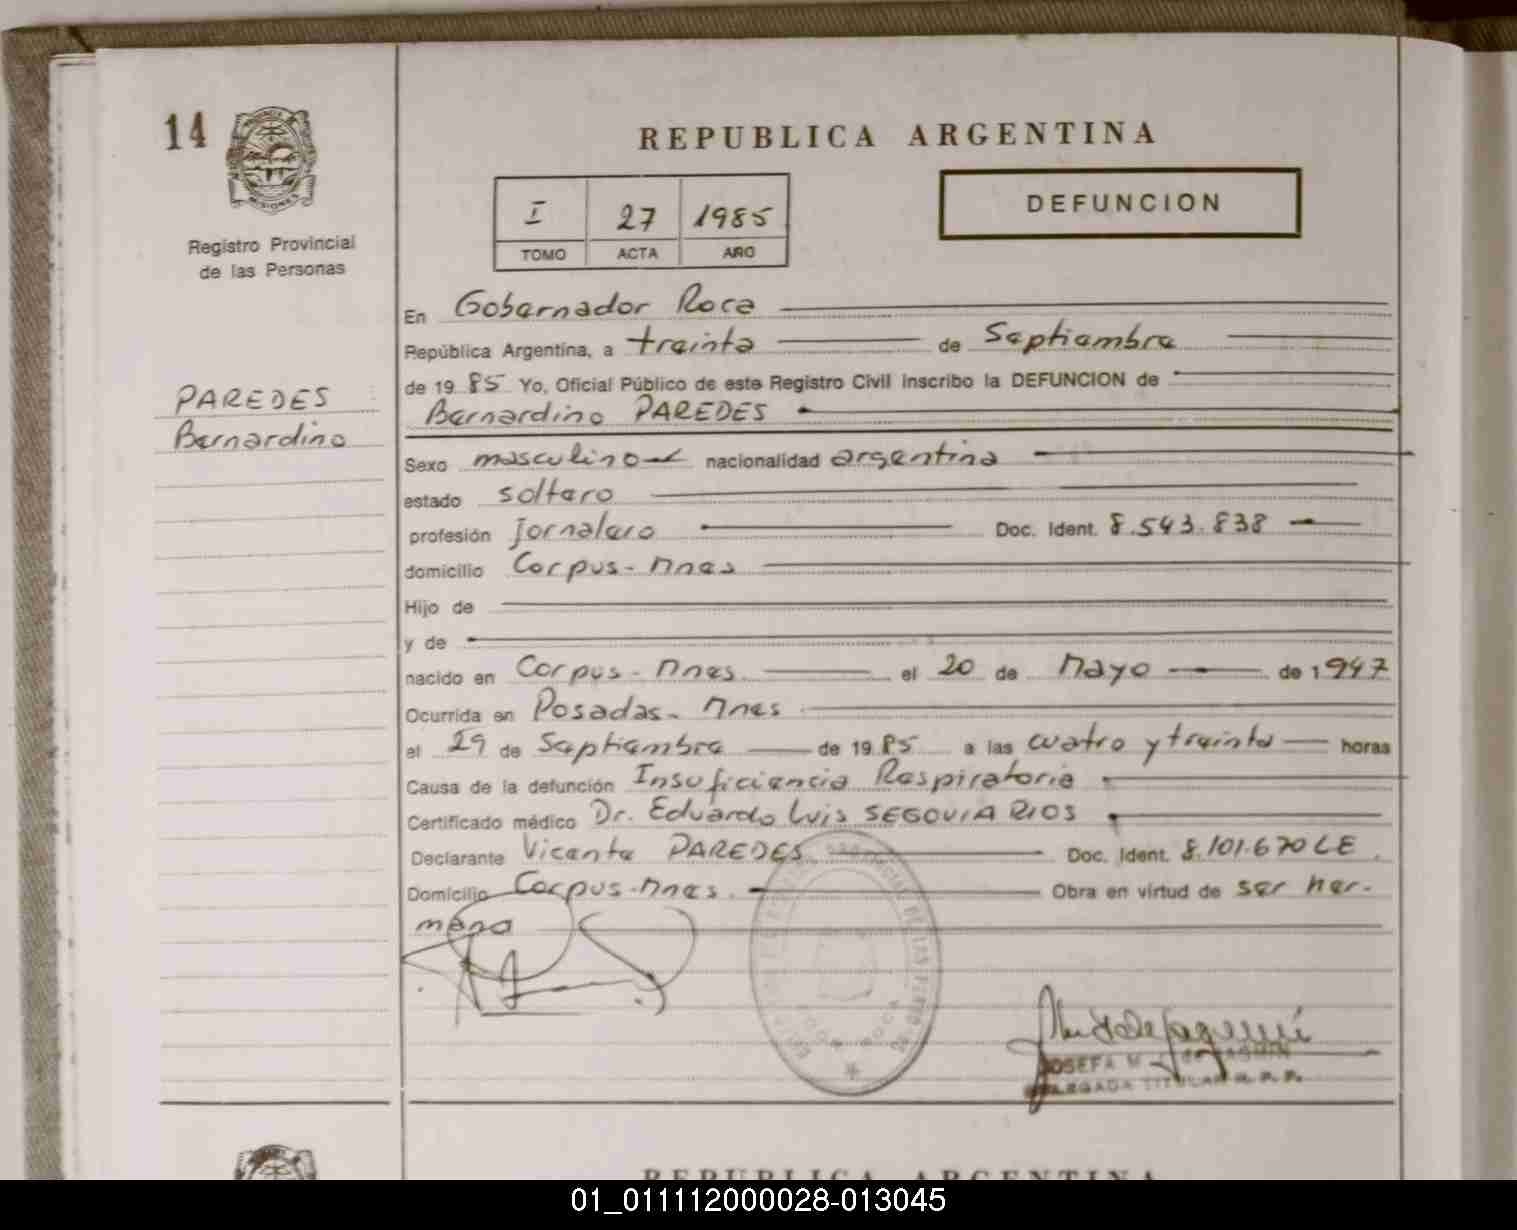 14
MISIONES
Registro Provincial
de las Personas
PAREDES
Bernardino
REPUBLICA ARGENTINA
I 27 1985
TOMO ACTA AÑO
DEFUNCION
En Gobernador Roca
República Argentina, a treinta de Septiembre
de 19 85 Yo, Oficial Público de este Registro Civil inscribo la DEFUNCION de
Bernardino PAREDES
Sexo masculino nacionalidad argentina
estado soltero
profesión Jornalero Doc. Ident. 8.543.838
domicilio Corpus-Mnes
Hijo de
y de
nacido en Corpus-Mnes. el 20 de Mayo de 1947
Ocurrida en Posadas-Mnes
el 29 de Septiembre de 19 85 a las cuatro y treinta horas
Causa de la defunción Insuficiencia Respiratoria
Certificado médico Dr. Eduardo Luis SEGOVIA RIOS
Declarante Vicente PAREDES Doc. Ident. 8.101.670 LE
Domicilio Corpus-Mnes. Obra en virtud de ser her-
mano
JOSEFA M
DELEGADA TITULAR R. P. P.
REPUBLICA ARGENTINA
01_011112000028-013045